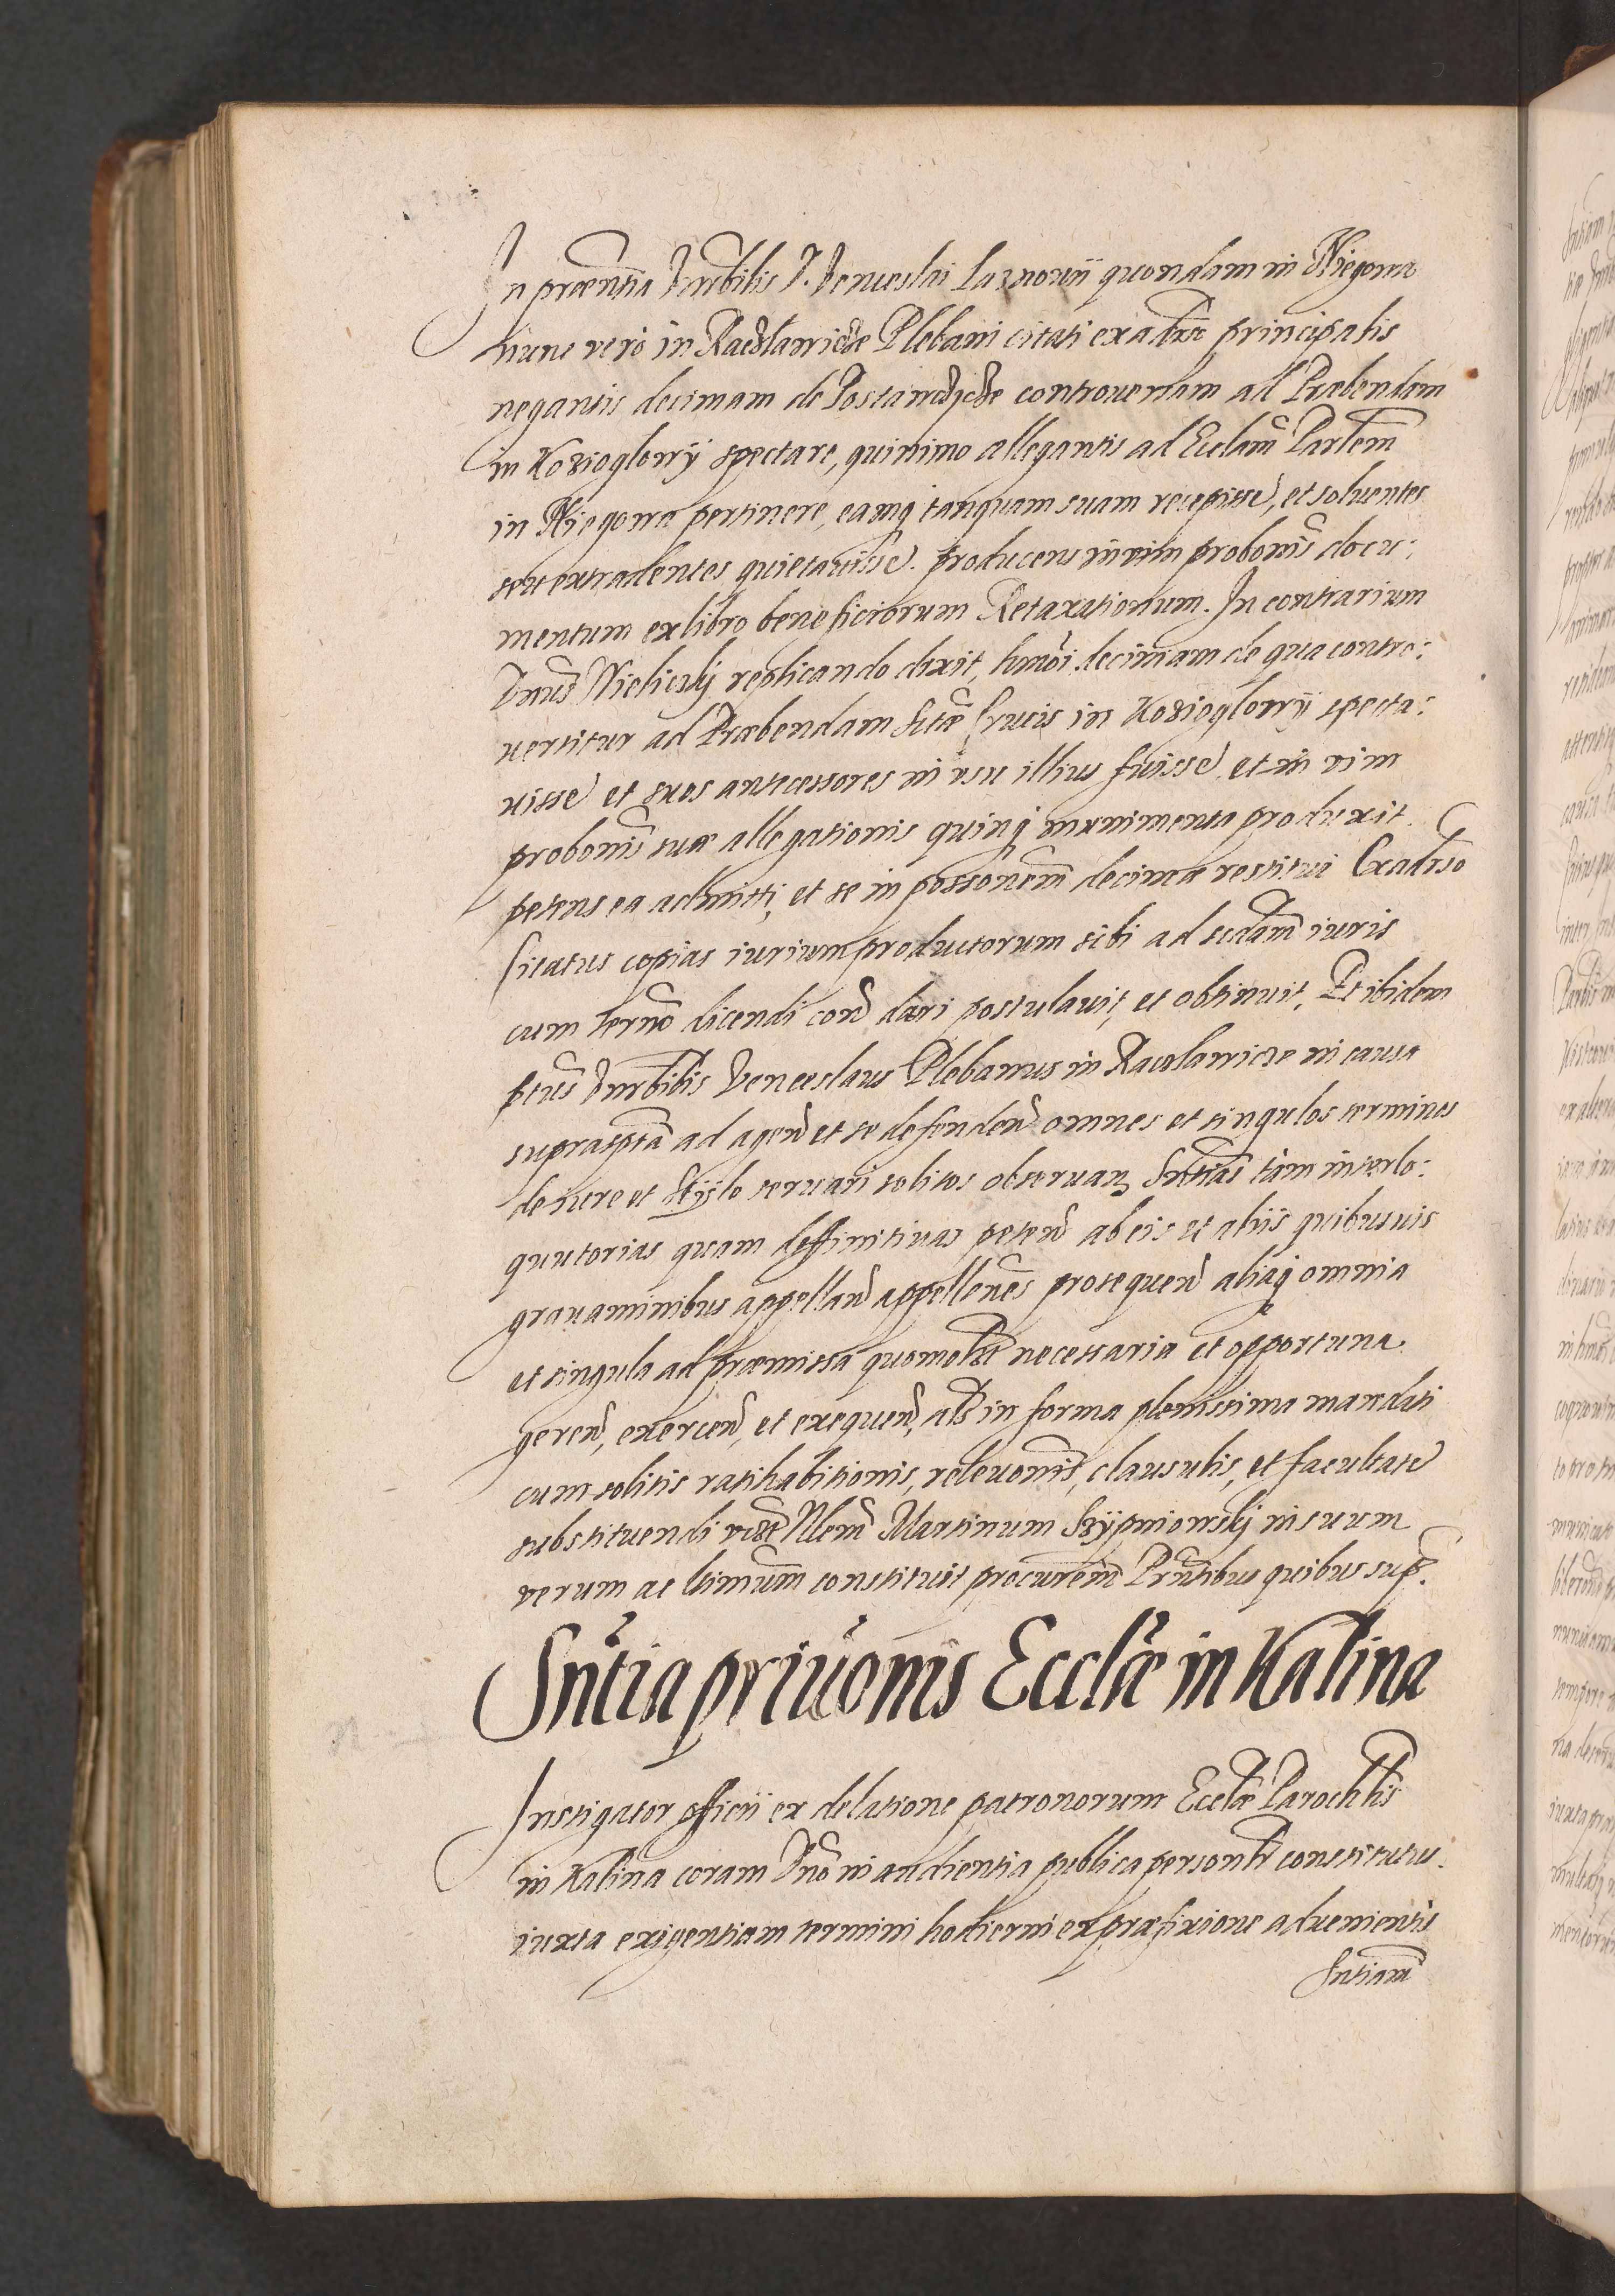 In præntia Vnrbilis D. Venceslai Laznowÿ quondam in Niegowa
nunc vero in Raczlawicze Plebani citati ex adūso principalis
negantis decimam de Postawczicze controuersam ad Præbendam
in Koziogłowÿ spectare, quinimo allegantis ad Ecclam Parlem
in Niegowa pertinere, eamq tanquam suam recepisse, et soluentes
seu extradentes quietauisse. producens in vim probonis docu:
mentum ex libro beneficiorum Retaxationum. In contrarium
Dnus Wielicskÿ replicando dixit, hmoi decimam de qua contro:
uertitur ad Præbendam Sctæ Crucis in Koziogłowÿ specta:
uisse et suos antecessores in usu illius fuisse et in vim
probonis suæ allegationis quinq munimenta produxit.
petens ea admitti, et se in possonem decimæ restitui Ex adūso
Citatus copias iurium productorum sibi ad dicdam iuris
cum termo dicendi con dari postulauit, et obtinuit, Et ibidem
ptus Vnrbibis Venceslaus Plebanus in Raczlawicze in causa
suprasptā ad agen et se defenden omnes et singulos terminos
de iure et Stÿlo seruari solitos obseruan, Sntias tàm interlo:
quutorias quam deffinitiuas peten ab eis et aliis quibusuis
grauaminibus appellan appellones prosequen aliaq omnia
et singula ad præmissa quomolt necessaria et opportuna
geren, exercen, et exequen, als in forma plenissima mandati
cum solitis ratihabitionis, releuonis, clausulis, et facultate
substituendi vidzt Nlem Martinum Szÿpniowskÿ in suum
verum ac ltimum constituit procurem Prntibus quibus sup.
Sntia priuonis Ecclæ in Kalina
Instigator officii ex delatione patronorum Ecclæ Parochlis
in Kalina coram Dno in audientia publica personlr constitutus
iuxta exigentiam termini hodierni ex præfixione aduenientis
Sntiam